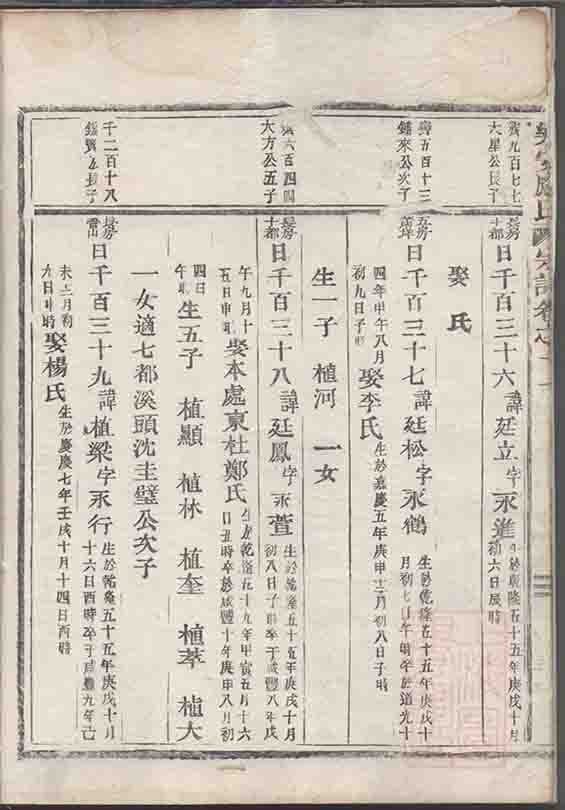 齊九百七七
大星公長子
長房
十都
日千百三十六 諱廷立字永進
生於乾隆五十五年庚戌十月
初六日辰時
娶 氏
齊五百十三
鍾來公次子
五房
日千百三十七 諱廷松字永鶴
生於乾隆五十五年庚戌十
月初七日午時卒於道光十
四年甲午八月
初九日子時
娶李氏
生於嘉慶五年庚申十二月初八日子時
生一子 植河 一女
六百四四
大方公五子
長房
十都
日千百三十八 諱廷鳳字永萱
生於乾隆五十五年庚戌十月
初八日子時卒于咸豐八年戊
午九月十
五日申時
娶本處東杜鄭氏
生於乾隆五十九年甲寅五月十六
日丑時卒於咸豐十年庚申八月初
四日
午時
生五子 植顯 植林 植奎 植萃 植大
一女適七都溪頭沈圭璧公次子
千二百十八
公長子
長房
日千百三十九 諱植梁字永行
生於乾隆五十五年庚戌十月
十六日酉時卒于咸豐九年己
未十二月初
九日申時
娶楊氏
生於嘉慶七年壬戌十月十四日酉時